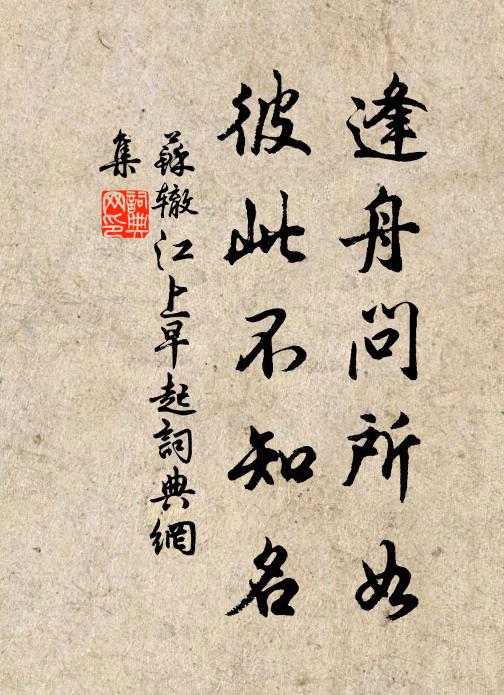 逢舟問所如
彼此不知名
蘇辙江上早起詞典網
集
詞典
网印